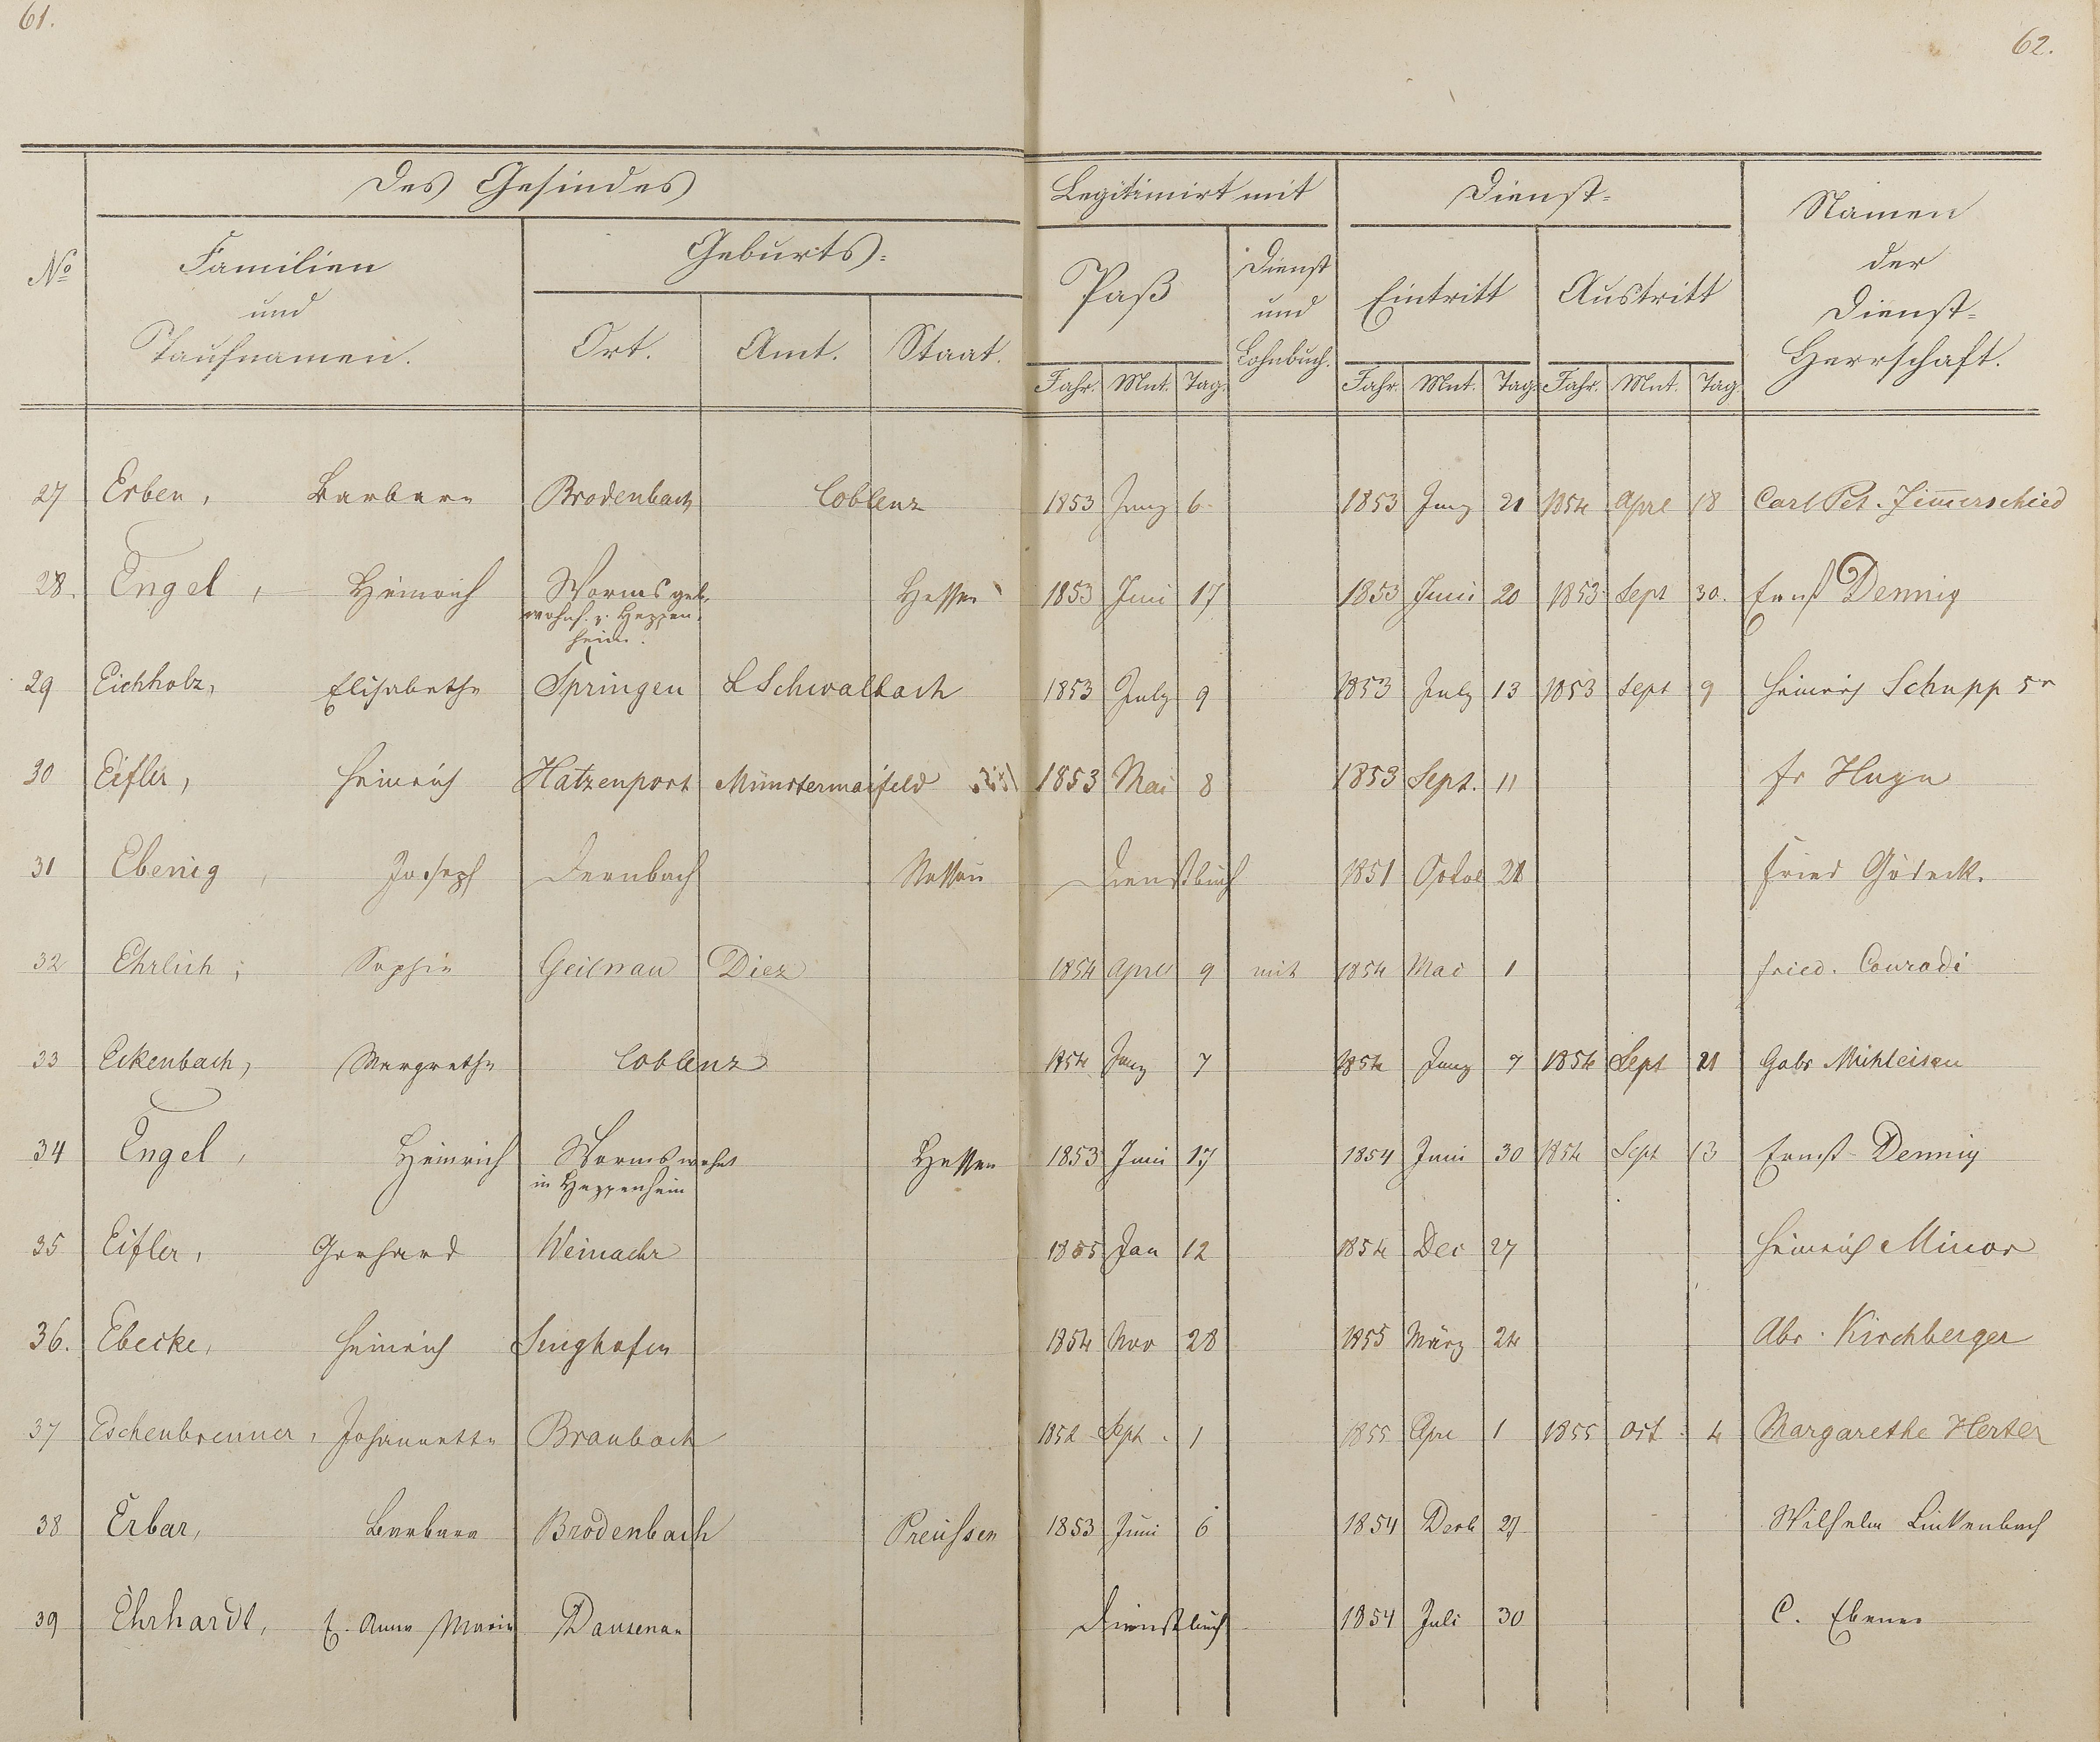 61.
62.
Des Gesindes
Legitimirt mit
Dienst=
Namen
der
Dienst=
Herrschaft.
No
Familien
und
Taufnamen.
Geburts=
Ort. Amt. Staat.
Paß
Dienst
und
Lohnbuch.
Eintritt Austritt
Jahr. Mnt. Tag. Jahr. Mnt. Tag. Jahr. Mnt. Tag.
27 Erben, Barbara Brodenbach Coblenz 1853 Juny 6 1853 Juny 21 1854 Aprl 18 Carl Pet. Zim̅erschied
28. Engel, Heinrich Worms geb. Hessen 1853 Juni 17 1853 Juni 20 1853 Sept 30. Ernst Dennig
wohnh. z. Heppen-
heim.
29 Eichholz, Elisabethe Springen L Schwalbach 1853 July 9 1853 July 13 1853 Sept 9 Heinrich Schupp 5r
30 Eifler, Heinrich Hatzenport Münstermaifeld 1853 Mai 8 1853 Sept. 11 Fr
31 Ebenig, Joseph Dernbach Nassau Dienstbuch 1851 21 Fried Gödeck.
32 Ehrlich, Sophie Geilnau Diez 1854 Aprl 9 mit 1854 Mai 1 Fried. Conradi
33 Eckenbach, Margrethe Coblenz 1854 Juny 7 1854 Juny 9 1854 Sept 21 Gabr Mühleisen
34 Engel, Heinrich Worms wohnt Hessen 1853 Juni 17 1854 Juni 30 1854 Sept 13 Ernst Dennig
in Heppenheim
35 Eifler, Gerhard Weinaehr 1855 Jan 12 1854 Dec 27 Heinrich Minor
36. Ebecke, Heinrich Singhofen 1854 Nov 28 1855 März 24 Abr. Kirchberger
37 Eschenbrenner, Johannette Braubach 1852 Sept. 1 1855 Apr 1 1855 Oct. 4 Margarethe Herter
38 Erbar, Barbara Brodenbach Preussen 1853 Juni 6 1854 Decb 27 Wilhelm Linkenbach
39 Ehrhardt, E. Anna Maria Dausenau Dienstbuch 1854 Juli 30 C. Ebener